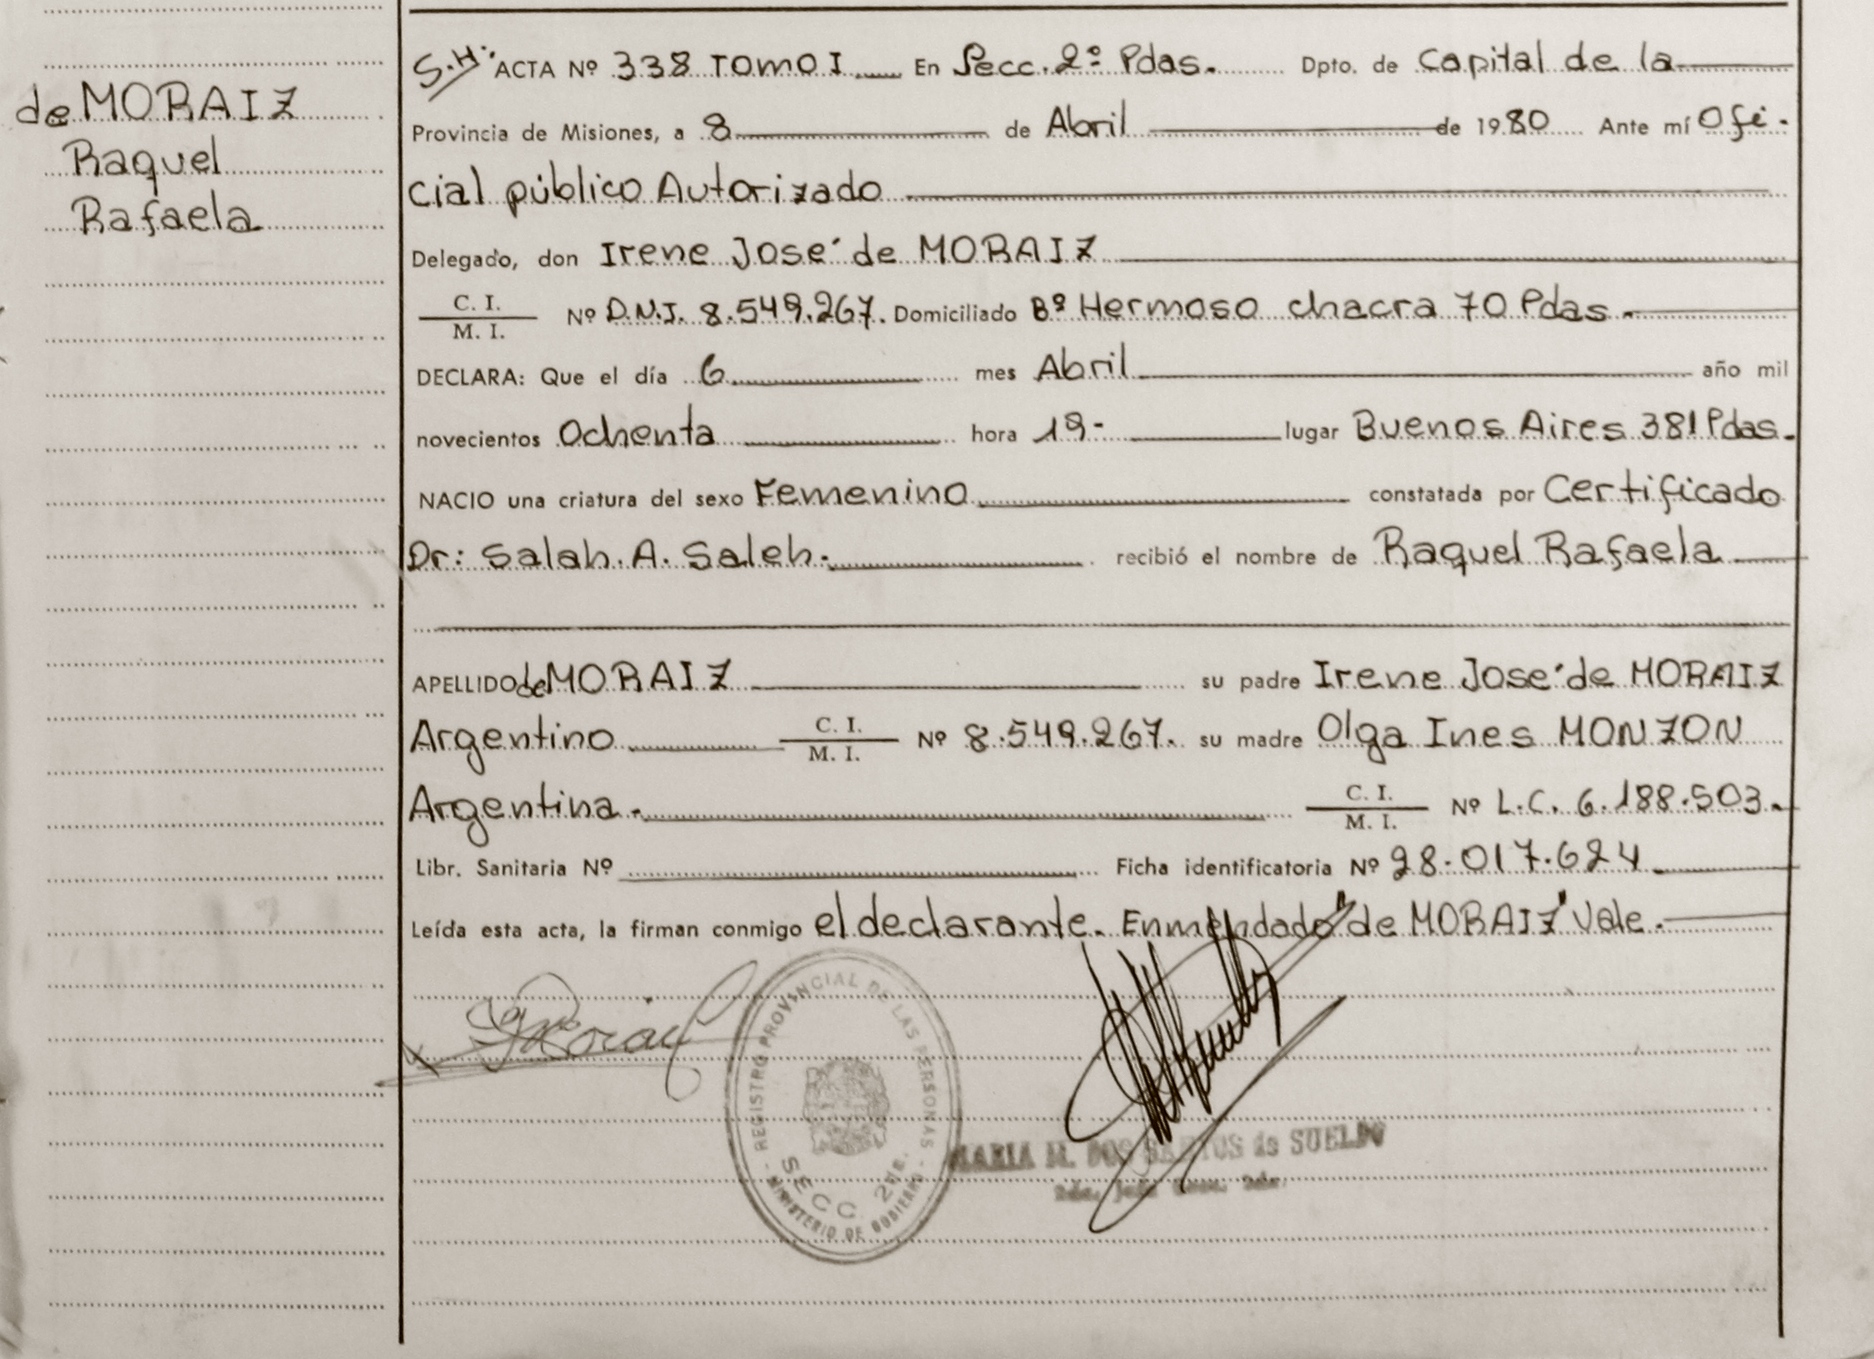 de MORAIZ
Raquel
Rafaela
S.H. ACTA Nº 338 TOMO I En Secc. 2º Pdas. Dpto. de Capital de la
Provincia de Misiones, a 8 de Abril de 1980 Ante mí Ofi-
cial público Autorizado
Delegado, don Irene José de MORAIZ
C. I.
M. I.
Nº D.N.I. 8.549.267. Domiciliado Bº Hermoso chacra 70 Pdas.
DECLARA: Que el día 6 mes Abril año mil
novecientos Ochenta hora 19- lugar Buenos Aires 381 Pdas.
NACIO una criatura del sexo Femenino constatada por Certificado
Dr: Salah. A. Saleh. recibió el nombre de Raquel Rafaela
APELLIDO de MORAIZ su padre Irene José de MORAIZ
Argentino C. I. M. I. Nº 8.549.267. su madre Olga Ines MONZON
Argentina. C. I. M. I. Nº L.C. 6.188.503.
Libr. Sanitaria Nº Ficha identificatoria Nº 28.017.624
Leída esta acta, la firman conmigo el declarante. Enmendado "de MORAIZ" Vale.
REGISTRO PROVINCIAL DE LAS PERSONAS
SECC. 2da.
MINISTERIO DE GOBIERNO
MARIA M. DOS SANTOS de SUELDO